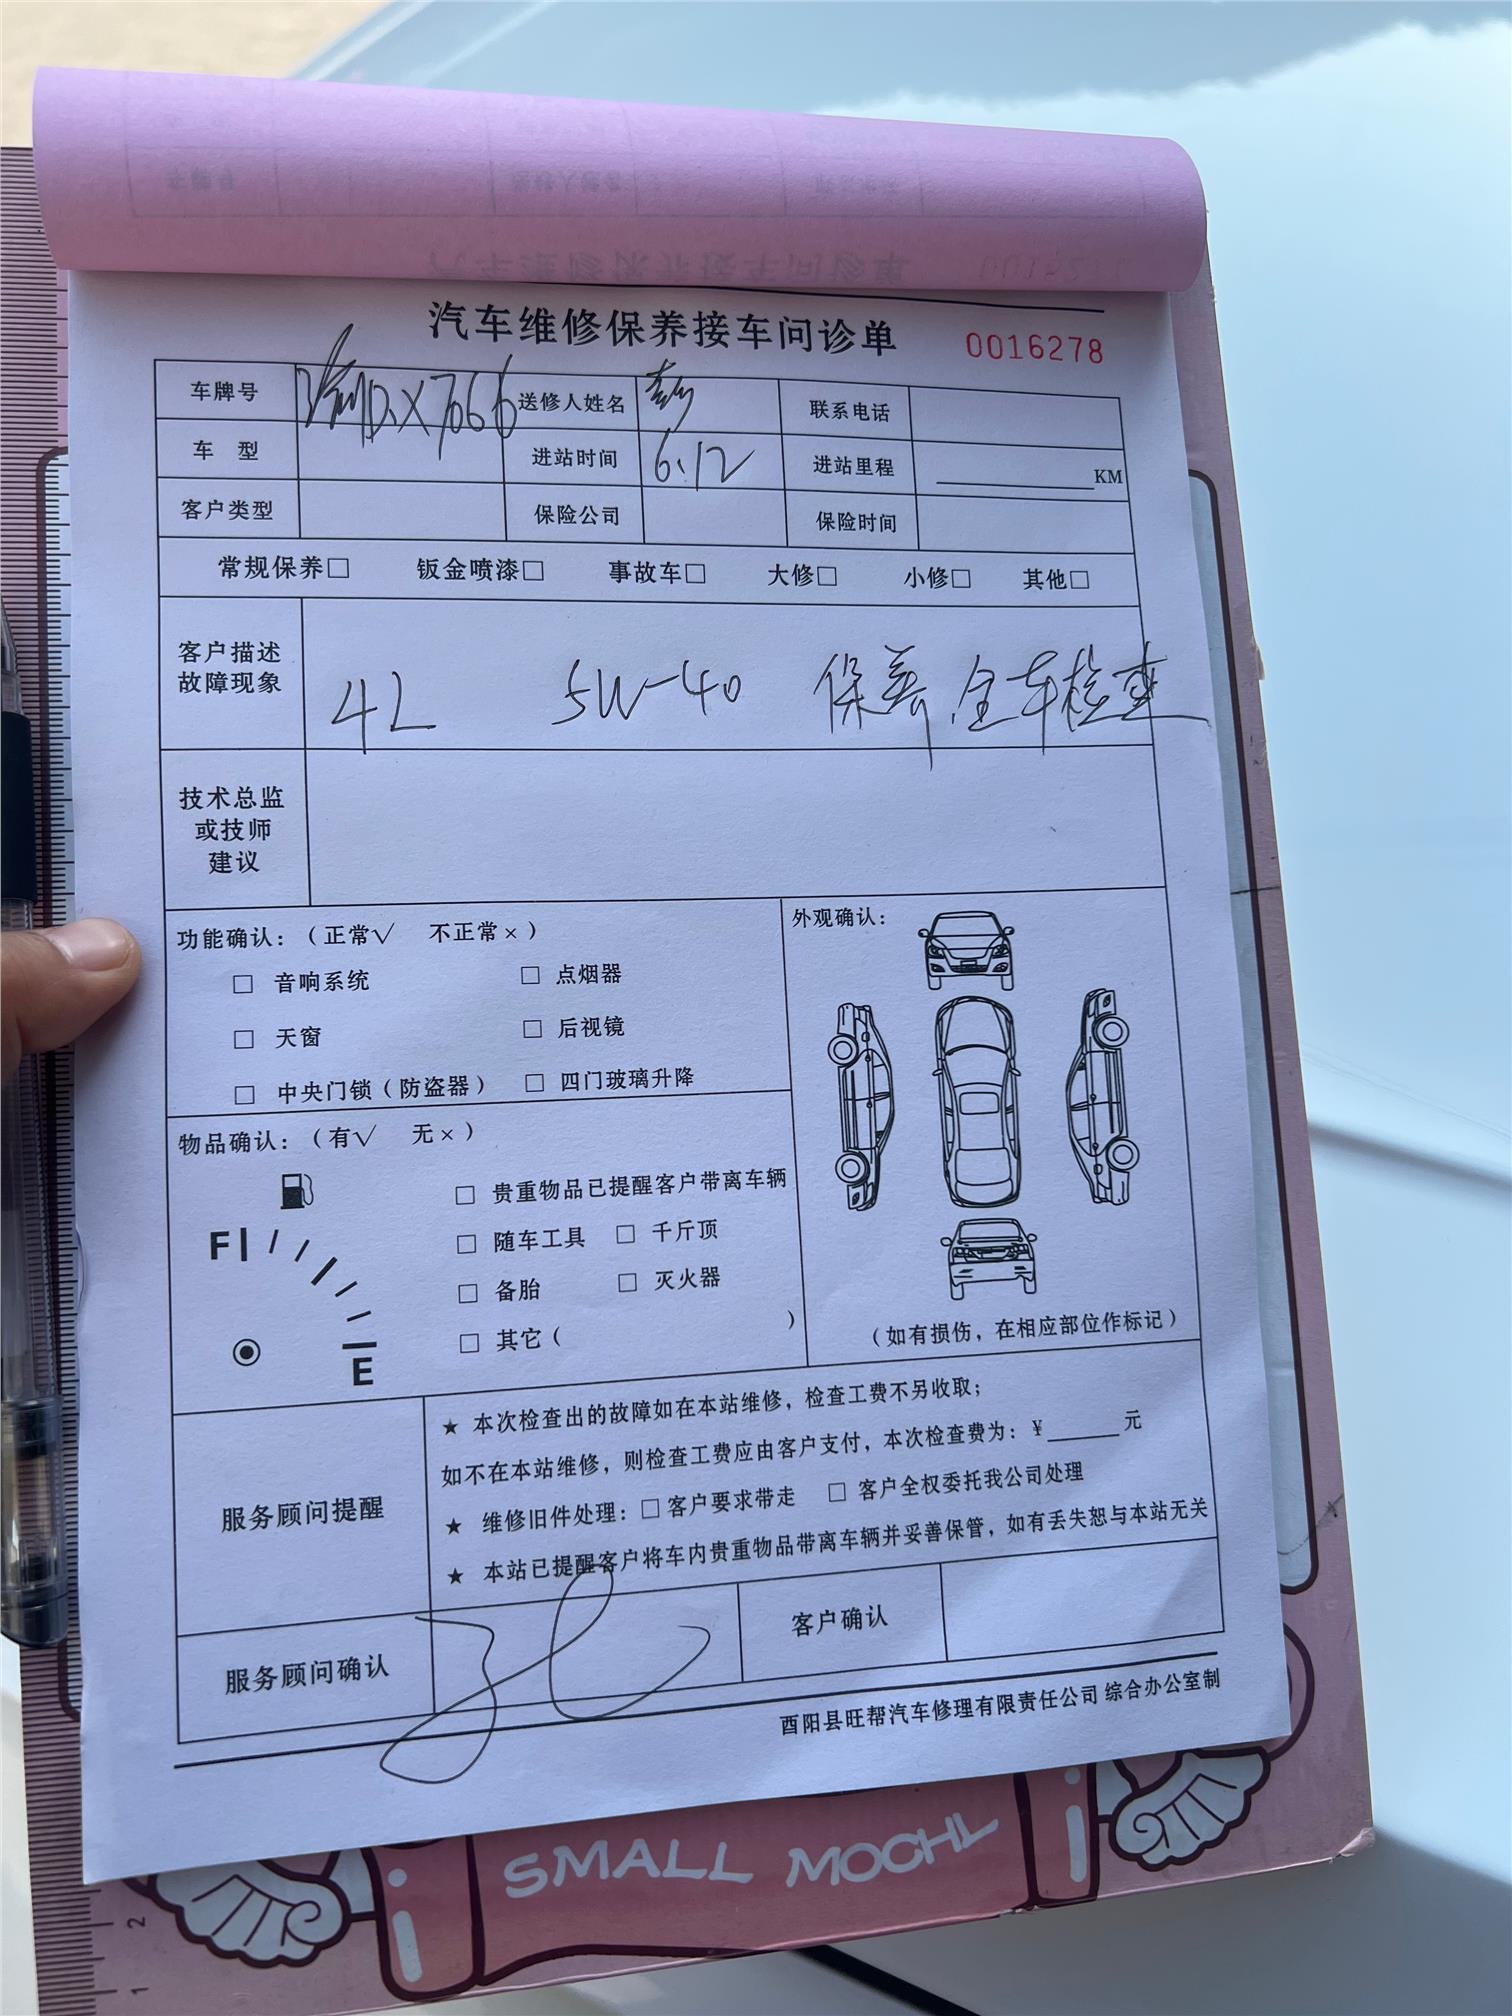 汽车维修保养接车问诊单 0016278
车牌号 渝D·X7066 送修人姓名 彭 联系电话
车 型 进站时间 6.12 进站里程 KM
客户类型 保险公司 保险时间
常规保养□ 钣金喷漆□ 事故车□ 大修□ 小修□ 其他□
客户描述
故障现象
4L 5W-40 保养 全车检查
技术总监
或技师
建议
功能确认：（正常√ 不正常×）
□ 音响系统 □ 点烟器
□ 天窗 □ 后视镜
□ 中央门锁（防盗器） □ 四门玻璃升降
外观确认：
物品确认：（有√ 无×）
□ 贵重物品已提醒客户带离车辆
F
□ 随车工具 □ 千斤顶
□ 备胎 □ 灭火器
□ 其它（ ）
E
（如有损伤，在相应部位作标记）
服务顾问提醒
★ 本次检查出的故障如在本站维修，检查工费不另收取；
如不在本站维修，则检查工费应由客户支付，本次检查费为：¥______元
★ 维修旧件处理：□客户要求带走 □ 客户全权委托我公司处理
★ 本站已提醒客户将车内贵重物品带离车辆并妥善保管，如有丢失恕与本站无关
服务顾问确认 客户确认
酉阳县旺帮汽车修理有限责任公司 综合办公室制
SMALL MOCHL
2
1